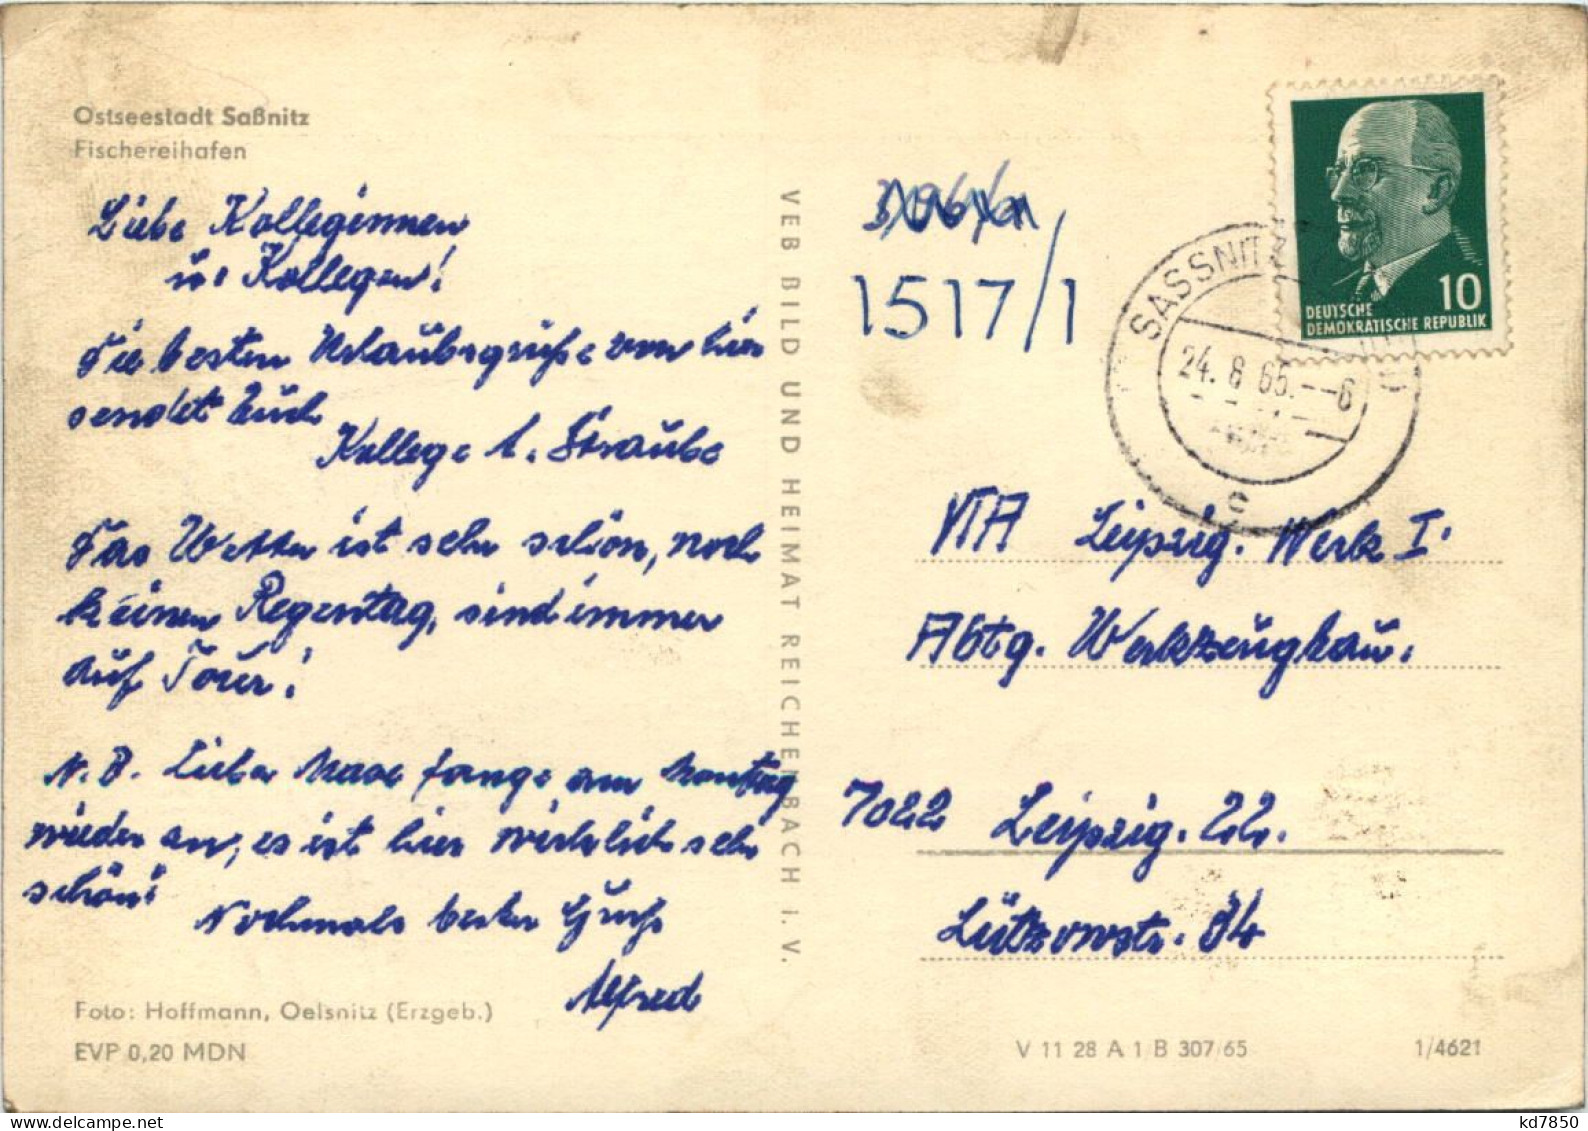 Ostseestadt Saßnitz
Fischereihafen
Liebe Kolleginnen
u. Kollegen!
Die besten Urlaubsgrüße von hier
sendet Euch
Kollege A. Straube
Das Wetter ist sehr schön, noch
keinen Regentag, sind immer
auf Tour!
N. B. Lieber Maxe fange am Montag
wieder an, es ist hier wirklich sehr
schön!
Nochmals besten Gruß
Alfred
Foto: Hoffmann, Oelsnitz (Erzgeb.)
EVP 0,20 MDN
VEB BILD UND HEIMAT REICHENBACH I. V.
1517/1
DEUTSCHE
DEMOKRATISCHE REPUBLIK
10
SASSNITZ
24. 8 65.--6
c
VTA Leipzig. Werk I.
Abtg. Werkzeugbau.
7022 Leipzig. 22.
Lützowstr. 34
V 11 28 A 1 B 307/65
1/4621
kd7850